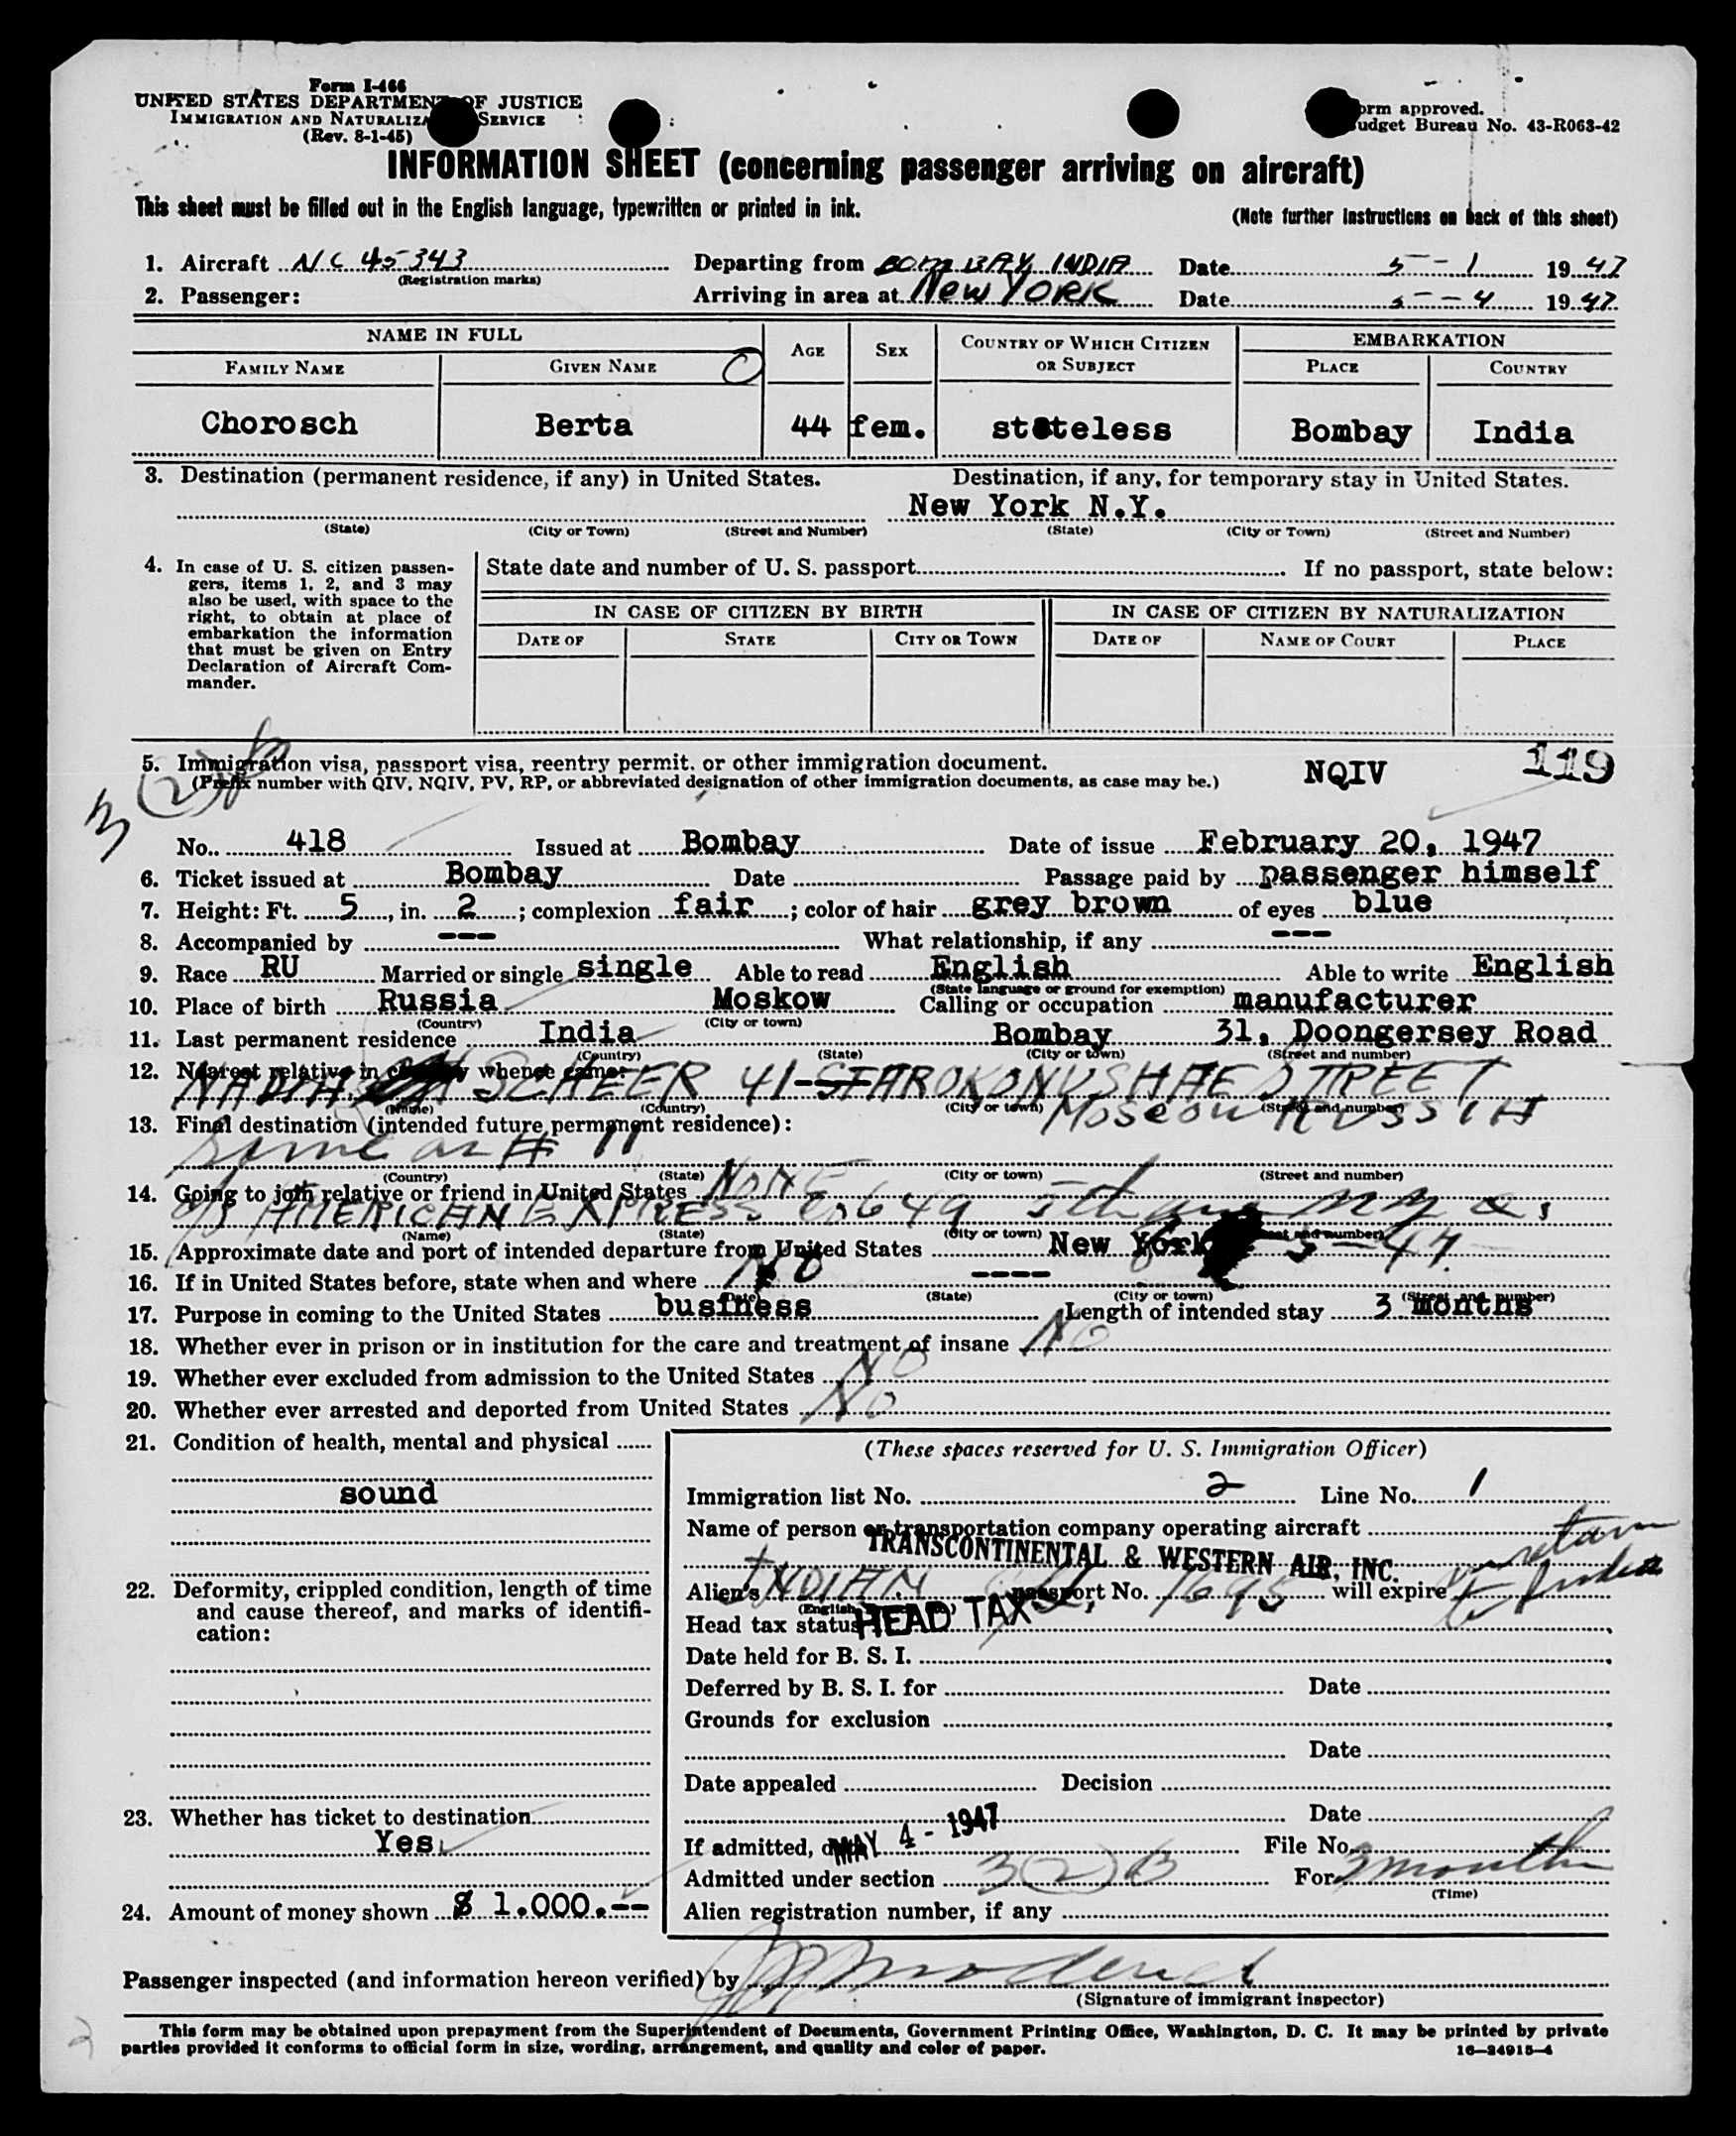 Form I-466
UNITED STATES DEPARTMENT OF JUSTICE
IMMIGRATION AND NATURALIZA SERVICE
(Rev. 8-1-45)
orm approved.
udget Bureau No. 43-R063-42
INFORMATION SHEET (concerning passenger arriving on aircraft)
This sheet must be filled out in the English language, typewritten or printed in ink.
(Note further instructions on back of this sheet)
1. Aircraft NC 45343 Departing from BOMBAY, INDIA Date 5-1 1947
(Registration marks)
2. Passenger: Arriving in area at New York Date 5--4 1947
NAME IN FULL AGE SEX COUNTRY OF WHICH CITIZEN OR SUBJECT EMBARKATION
FAMILY NAME GIVEN NAME PLACE COUNTRY
Chorosch Berta 44 fem. stateless Bombay India
3. Destination (permanent residence, if any) in United States. Destination, if any, for temporary stay in United States.
New York N.Y.
(State) (City or Town) (Street and Number) (State) (City or Town) (Street and Number)
4. In case of U. S. citizen passen-
gers, items 1, 2, and 3 may
also be used, with space to the
right, to obtain at place of
embarkation the information
that must be given on Entry
Declaration of Aircraft Com-
mander.
State date and number of U. S. passport If no passport, state below:
IN CASE OF CITIZEN BY BIRTH IN CASE OF CITIZEN BY NATURALIZATION
DATE OF STATE CITY OR TOWN DATE OF NAME OF COURT PLACE
5. Immigration visa, passport visa, reentry permit, or other immigration document.
(Prefix number with QIV, NQIV, PV, RP, or abbreviated designation of other immigration documents, as case may be.)
NQIV 119
3 (2) B
No. 418 Issued at Bombay Date of issue February 20, 1947
6. Ticket issued at Bombay Date Passage paid by passenger himself
7. Height: Ft. 5, in. 2; complexion fair; color of hair grey brown of eyes blue
8. Accompanied by --- What relationship, if any ---
9. Race RU Married or single single Able to read English Able to write English
(State language or ground for exemption)
10. Place of birth Russia Moskow Calling or occupation manufacturer
(Country) (City or town)
11. Last permanent residence India Bombay 31, Doongersey Road
(Country) (State) (City or town) (Street and number)
12. Nearest relative in whence came:
NADIA SCHEER 41-STAROKONUSHAE STREET
(Name) (Country) (City or town) (Street and number)
Moscow RUSSIA
13. Final destination (intended future permanent residence):
Same as # 11
(Country) (State) (City or town) (Street and number)
14. Going to join relative or friend in United States NONE
c/o AMERICAN EXPRESS Co 649 5th ave NY
(Name) (State) (City or town) (Street and number)
15. Approximate date and port of intended departure from United States New York 5-47.
16. If in United States before, state when and where No ----
(Date) (State) (City or town) (Street and number)
17. Purpose in coming to the United States business Length of intended stay 3 months
18. Whether ever in prison or in institution for the care and treatment of insane No
19. Whether ever excluded from admission to the United States No
20. Whether ever arrested and deported from United States No
21. Condition of health, mental and physical
sound
22. Deformity, crippled condition, length of time
and cause thereof, and marks of identifi-
cation:
23. Whether has ticket to destination
Yes
24. Amount of money shown $ 1.000.--
(These spaces reserved for U. S. Immigration Officer)
Immigration list No. 2 Line No. 1
Name of person or transportation company operating aircraft
TRANSCONTINENTAL & WESTERN AIR, INC.
return
to India
Alien's INDIAN passport No. 1695 will expire
Head tax status HEAD TAX
Date held for B. S. I.
Deferred by B. S. I. for Date
Grounds for exclusion
Date
Date appealed Decision
Date
If admitted, MAY 4 - 1947 File No.
Admitted under section 3(2)B For 3 months
(Time)
Alien registration number, if any
Passenger inspected (and information hereon verified) by
(Signature of immigrant inspector)
This form may be obtained upon prepayment from the Superintendent of Documents, Government Printing Office, Washington, D. C. It may be printed by private
parties provided it conforms to official form in size, wording, arrangement, and quality and color of paper.
16-24915-4